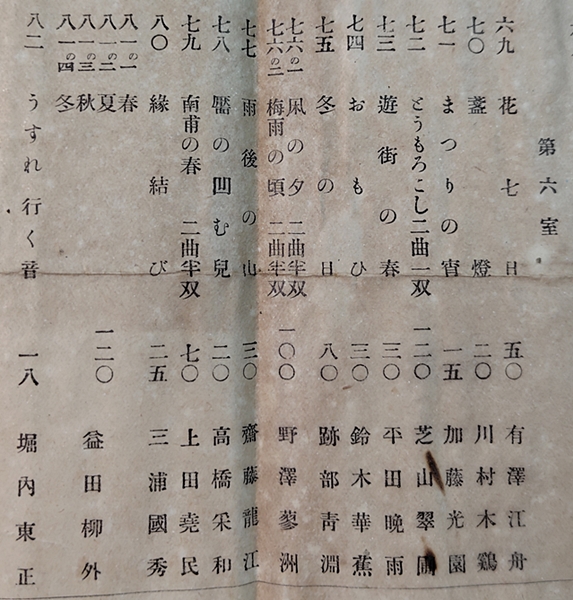 第六室
六九 花七日 五〇 有澤江舟
七〇 盞燈 二〇 川村木鷄
七一 まつりの宵 一五 加藤光園
七二 とうもろこし二曲一双 一二〇 芝山翠圃
七三 遊街の春 三〇 平田晩雨
七四 おもひ 三〇 鈴木華蕉
七五 冬の日 八〇 跡部靑淵
七六の一 凩の夕 二曲半双
七六の二 梅雨の頃 二曲半双 一〇〇 野澤蓼洲
七七 雨後の山 三〇 齋藤龍江
七八 靨の凹む兒 二〇 高橋采和
七九 南甫の春 二曲半双 七〇 上田堯民
八〇 緣結び 二五 三浦國秀
八一の一 春
八一の二 夏
八一の三 秋
八一の四 冬 一二〇 益田柳外
八二 うすれ行く音 一八 堀內東正